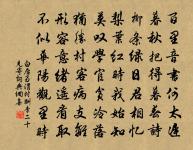 百里音書何太遲
暮秋把得暮春詩
柳條綠日君相憶
梨葉紅時我始知
莫嘆學官貧冷落
猶勝村客病支離
形容意緒遙看取
不似華陽觀里時
白居易渭村酬李二十
見寄詞典網集